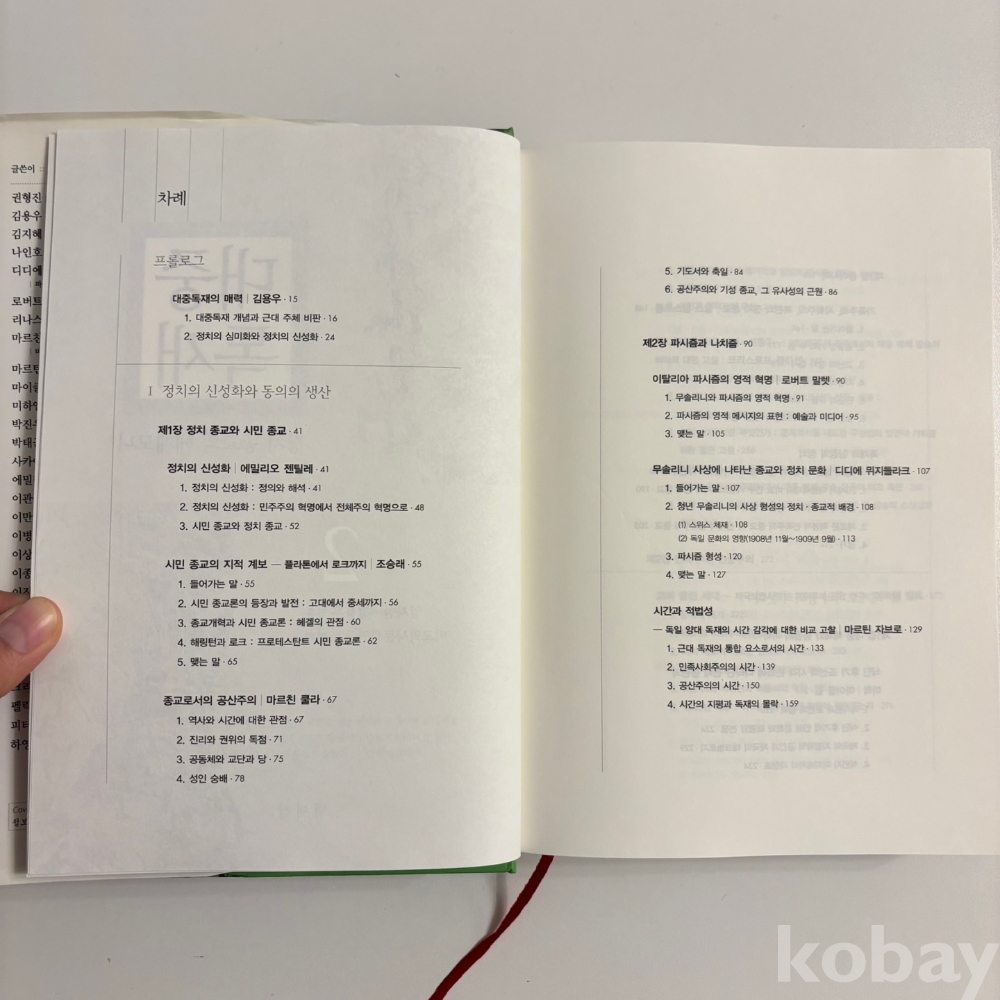 글쓴이
권형진
김용우
김지혜
나인호
디디에
로버트
리나스
마르친
마르틴
마이클
미하엘
박진우
사카이
에밀
이관
이만
이병
이상
이종
펠릭
피터
하영
차례
프롤로그
대중독재의 매력 | 김용우 · 15
1. 대중독재 개념과 근대 주체 비판 · 16
2. 정치의 심미화와 정치의 신성화 · 24
I 정치의 신성화와 동의의 생산
제1장 정치 종교와 시민 종교 · 41
정치의 신성화 | 에밀리오 젠틸레 · 41
1. 정치의 신성화 : 정의와 해석 · 41
2. 정치의 신성화 : 민주주의 혁명에서 전체주의 혁명으로 · 48
3. 시민 종교와 정치 종교 · 52
시민 종교의 지적 계보 — 플라톤에서 로크까지 | 조승래 · 55
1. 들어가는 말 · 55
2. 시민 종교론의 등장과 발전 : 고대에서 중세까지 · 56
3. 종교개혁과 시민 종교론 : 헤겔의 관점 · 60
4. 해링턴과 로크 : 프로테스탄트 시민 종교론 · 62
5. 맺는 말 · 65
종교로서의 공산주의 | 마르친 쿨라 · 67
1. 역사와 시간에 대한 관점 · 67
2. 진리와 권위의 독점 · 71
3. 공동체와 교단과 당 · 75
4. 성인 숭배 · 78
5. 기도서와 축일 · 84
6. 공산주의와 기성 종교, 그 유사성의 근원 · 86
제2장 파시즘과 나치즘 · 90
이탈리아 파시즘의 영적 혁명 | 로버트 말렛 · 90
1. 무솔리니와 파시즘의 영적 혁명 · 91
2. 파시즘의 영적 메시지의 표현 : 예술과 미디어 · 95
3. 맺는 말 · 105
무솔리니 사상에 나타난 종교와 정치 문화 | 디디에 뮈지들라크 · 107
1. 들어가는 말 · 107
2. 청년 무솔리니의 사상 형성의 정치 · 종교적 배경 · 108
(1) 스위스 체재 · 108
(2) 독일 문화의 영향(1908년 11월~1909년 9월) · 113
3. 파시즘 형성 · 120
4. 맺는 말 · 127
시간과 적법성
— 독일 양대 독재의 시간 감각에 대한 비교 고찰 | 마르틴 자브로 · 129
1. 근대 독재의 통합 요소로서의 시간 · 133
2. 민족사회주의의 시간 · 139
3. 공산주의의 시간 · 150
4. 시간의 지평과 독재의 몰락 · 159
kobay